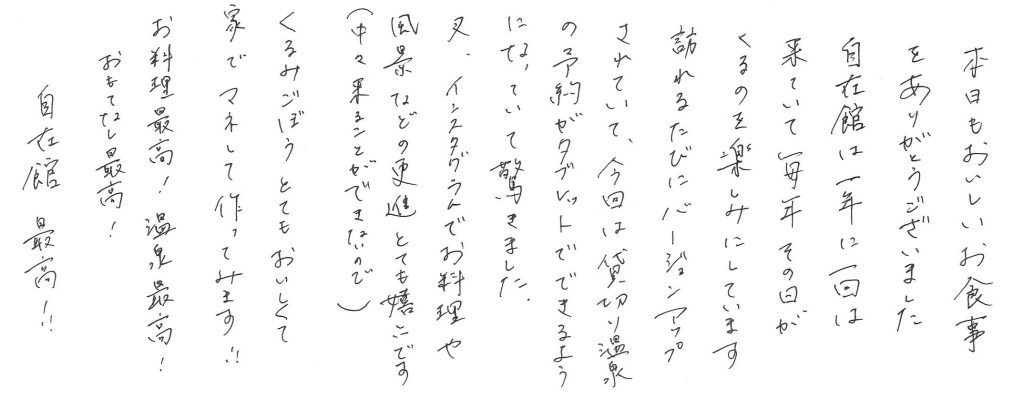 本日もおいしいお食事
をありがとうございました
自在館は一年に一回は
来ていて毎年その日が
くるのを楽しみにしています
訪れるたびにバージョンアップ
されていて、今回は貸切り温泉
の予約がタブレットでできるよう
になっていて驚きました、
又、インスタグラムでお料理や
風景などの更進とても嬉しいです
(中々来ることができないので)
くるみごぼうとてもおいしくて
家でマネして作ってみます!!
お料理最高!温泉最高!
おもてなし最高!
自在館 最高!!